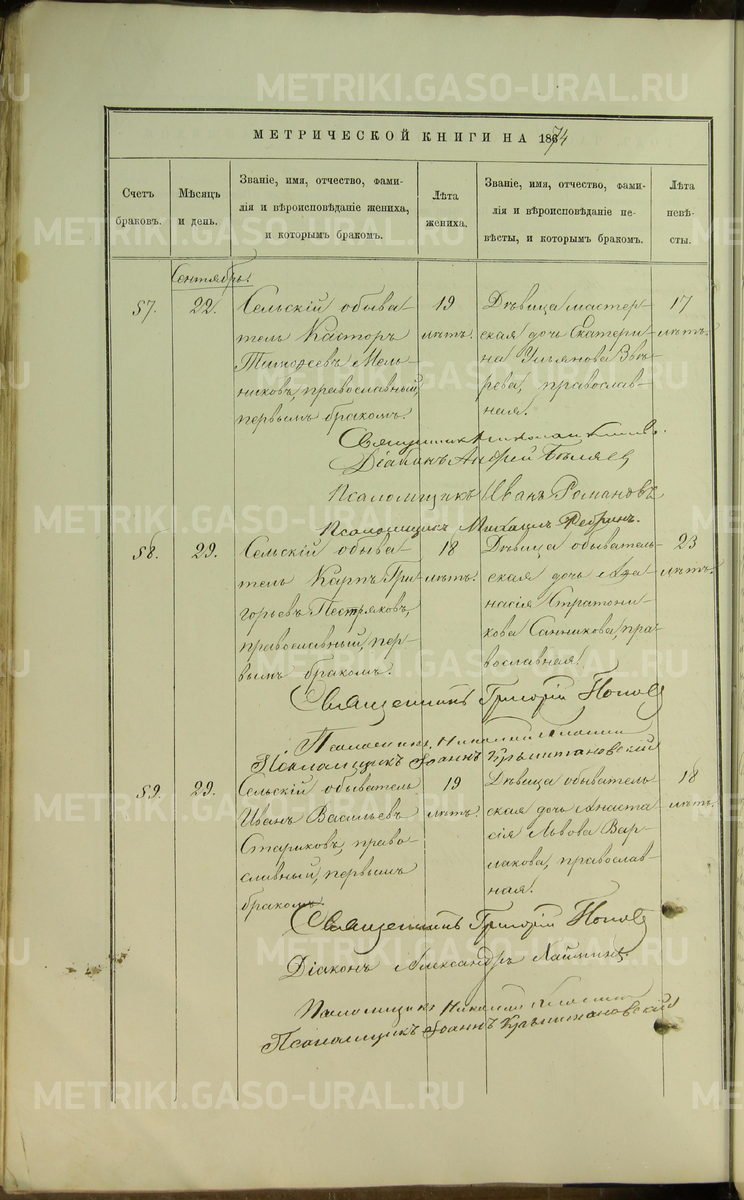 МЕТРИЧЕСКОЙ КНИГИ НА 1874
Счетъ
браковъ.
Мѣсяцъ
и день.
Званіе, имя, отчество, фами-
лія и вѣроисповѣданіе жениха,
и которымъ бракомъ.
Лѣта
жениха.
Званіе, имя, отчество, фами-
лія и вѣроисповѣданіе не-
вѣсты, и которымъ бракомъ.
Лѣта
невѣ-
сты.
Сентябрь.
57.
22.
Сельскій обыва
тель Касторъ
Тимоѳеевъ Мель
никовъ, православный,
первымъ бракомъ.
19
лѣтъ.
Дѣвица мастер-
ская дочь Екатери-
на Ульянова Звѣ-
рева, православ-
ная.
17
лѣтъ.
Священникъ Николай
Діаконъ Андрей Бѣляев
Псаломщикъ Иванъ Романовъ
Псаломщикъ Михаилъ
58.
29.
Сельскій обыва
тель Карпъ Гри
горьевъ Пестряковъ,
православный, пер-
вымъ бракомъ.
18
лѣтъ.
Дѣвица обыватель-
ская дочь Аѳа
насія Стратони-
кова Санникова, пра-
вославная.
23
лѣтъ.
Священникъ Григорій Поповъ
Псаломщикъ Николай
Псаломщикъ Іоаннъ Крыжановский
59.
29.
Сельскій обыватель
Иванъ Васильевъ
Стариковъ, право-
славный, первымъ
бракомъ.
19
лѣтъ.
Дѣвица обыватель-
ская дочь Анаста
сія Львова Вар-
лакова, православ-
ная.
18
лѣтъ.
Священникъ Григорій Поповъ
Діаконъ Александръ
Псаломщикъ Николай
Псаломщикъ Іоаннъ Крыжановский
METRIKI.GASO-URAL.RU